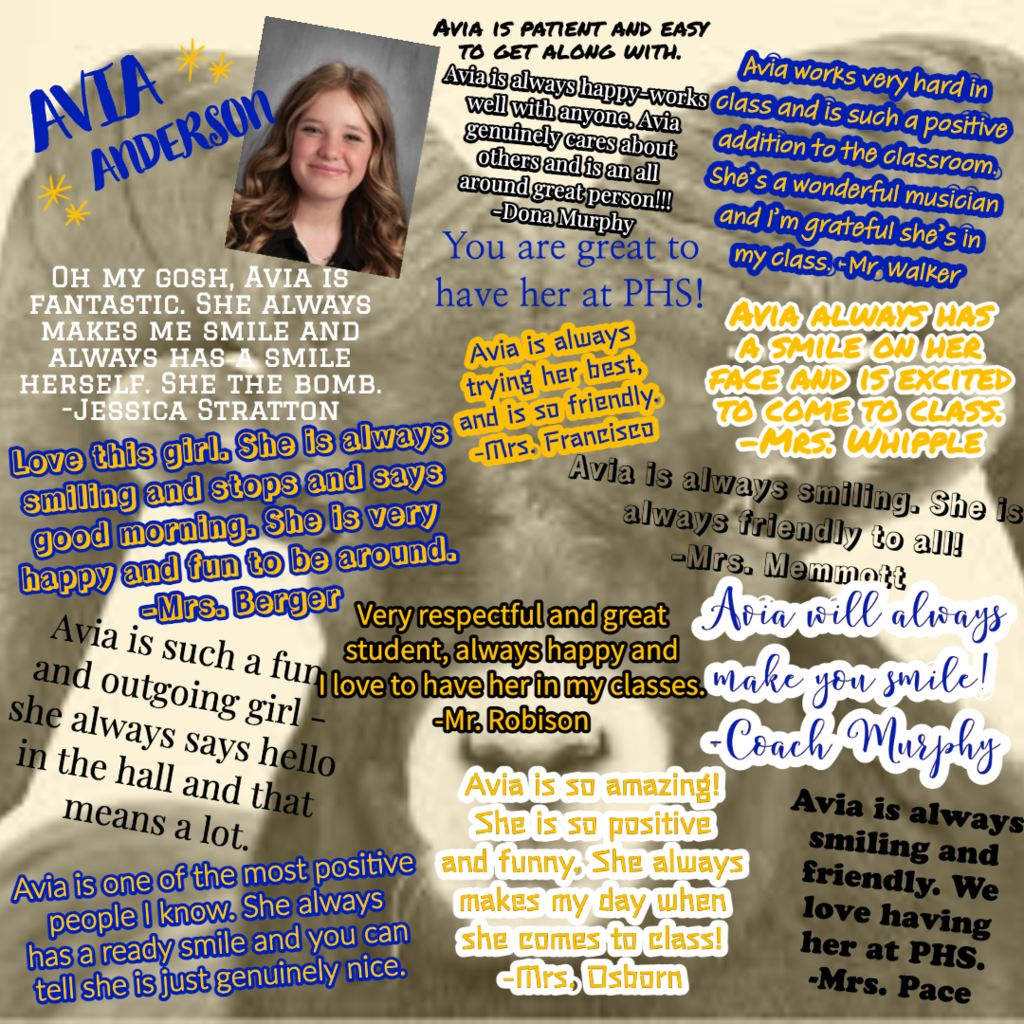 AVIA
ANDERSON
AVIA IS PATIENT AND EASY
TO GET ALONG WITH.
Avia is always happy-works
well with anyone. Avia
genuinely cares about
others and is an all
around great person!!!
-Dona Murphy
You are great to
have her at PHS!
Avia works very hard in
class and is such a positive
addition to the classroom.
She's a wonderful musician
and I'm grateful she's in
my class. -Mr. Walker
OH MY GOSH, AVIA IS
FANTASTIC. SHE ALWAYS
MAKES ME SMILE AND
ALWAYS HAS A SMILE
HERSELF. SHE THE BOMB.
-JESSICA STRATTON
Avia is always
trying her best,
and is so friendly.
-Mrs. Francisco
AVIA ALWAYS HAS
A SMILE ON HER
FACE AND IS EXCITED
TO COME TO CLASS.
-MRS. WHIPPLE
Love this girl. She is always
smiling and stops and says
good morning. She is very
happy and fun to be around.
-Mrs. Berger
Avia is always smiling. She is
always friendly to all!
-Mrs. Memmott
Avia is such a fun
and outgoing girl -
she always says hello
in the hall and that
means a lot.
Very respectful and great
student, always happy and
I love to have her in my classes.
-Mr. Robison
Avia will always
make you smile!
-Coach Murphy
Avia is one of the most positive
people I know. She always
has a ready smile and you can
tell she is just genuinely nice.
Avia is so amazing!
She is so positive
and funny. She always
makes my day when
she comes to class!
-Mrs. Osborn
Avia is always
smiling and
friendly. We
love having
her at PHS.
-Mrs. Pace